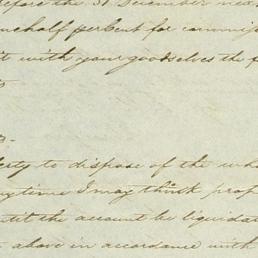 before the 31 December nex
onehalf percent for commis
t with your goodselves the f
to
erty to dispose of the wh
anytime I may think prop
until the account be liquida
above in accordance with